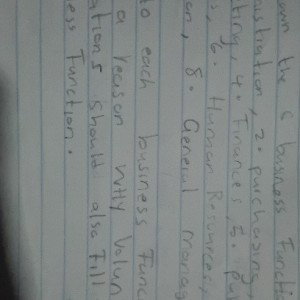 the 8 business Functi
2. purchasing
ting, 4. Finances, 5.
6. Human Resources,
on, 8. General manag
to each business Func
a reason why Volun
ations should also fill
ess Function.